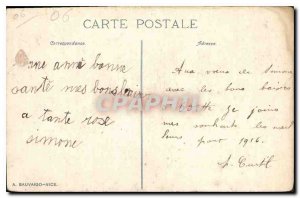 06 06
CARTE POSTALE
Correspondance.
Adresse.
anne bonne
santé mes bons
a tante rose
simone
Aux vœux de Simone
avec les bons baisers
je joins
mes souhaits les meil
leurs pour 1916.
A. BAUVAIGO-NICE.